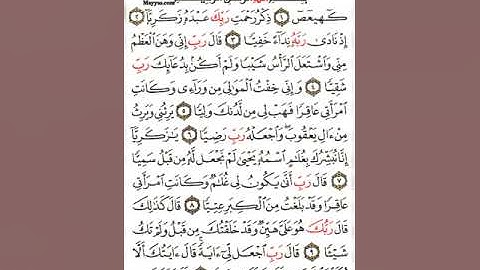 Mayyso.com
كٓهيعٓصٓ ١ ذِكْرُ رَحْمَتِ رَبِّكَ عَبْدَهُۥ زَكَرِيَّآ ٢
إِذْ نَادَىٰ رَبَّهُۥ نِدَآءً خَفِيًّا ٣ قَالَ رَبِّ إِنِّى وَهَنَ ٱلْعَظْمُ
مِنِّى وَٱشْتَعَلَ ٱلرَّأْسُ شَيْبًا وَلَمْ أَكُنۢ بِدُعَآئِكَ رَبِّ
شَقِيًّا ٤ وَإِنِّى خِفْتُ ٱلْمَوَٰلِىَ مِن وَرَآءِى وَكَانَتِ
ٱمْرَأَتِى عَاقِرًا فَهَبْ لِى مِن لَّدُنكَ وَلِيًّا ٥ يَرِثُنِى وَيَرِثُ
مِنْ ءَالِ يَعْقُوبَ وَٱجْعَلْهُ رَبِّ رَضِيًّا ٦ يَٰزَكَرِيَّآ
إِنَّا نُبَشِّرُكَ بِغُلَٰمٍ ٱسْمُهُۥ يَحْيَىٰ لَمْ نَجْعَل لَّهُۥ مِن قَبْلُ سَمِيًّا
٧ قَالَ رَبِّ أَنَّىٰ يَكُونُ لِى غُلَٰمٌ وَكَانَتِ ٱمْرَأَتِى
عَاقِرًا وَقَدْ بَلَغْتُ مِنَ ٱلْكِبَرِ عِتِيًّا ٨ قَالَ كَذَٰلِكَ
قَالَ رَبُّكَ هُوَ عَلَىَّ هَيِّنٌ وَقَدْ خَلَقْتُكَ مِن قَبْلُ وَلَمْ تَكُ
شَيْـًٔا ٩ قَالَ رَبِّ ٱجْعَل لِّىٓ ءَايَةً قَالَ ءَايَتُكَ أَلَّا